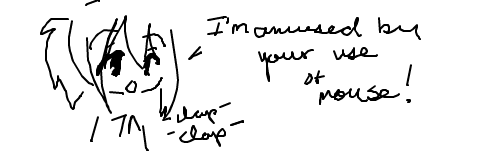 I'm amused by
your use
of
mouse!
-clap-
-clap-